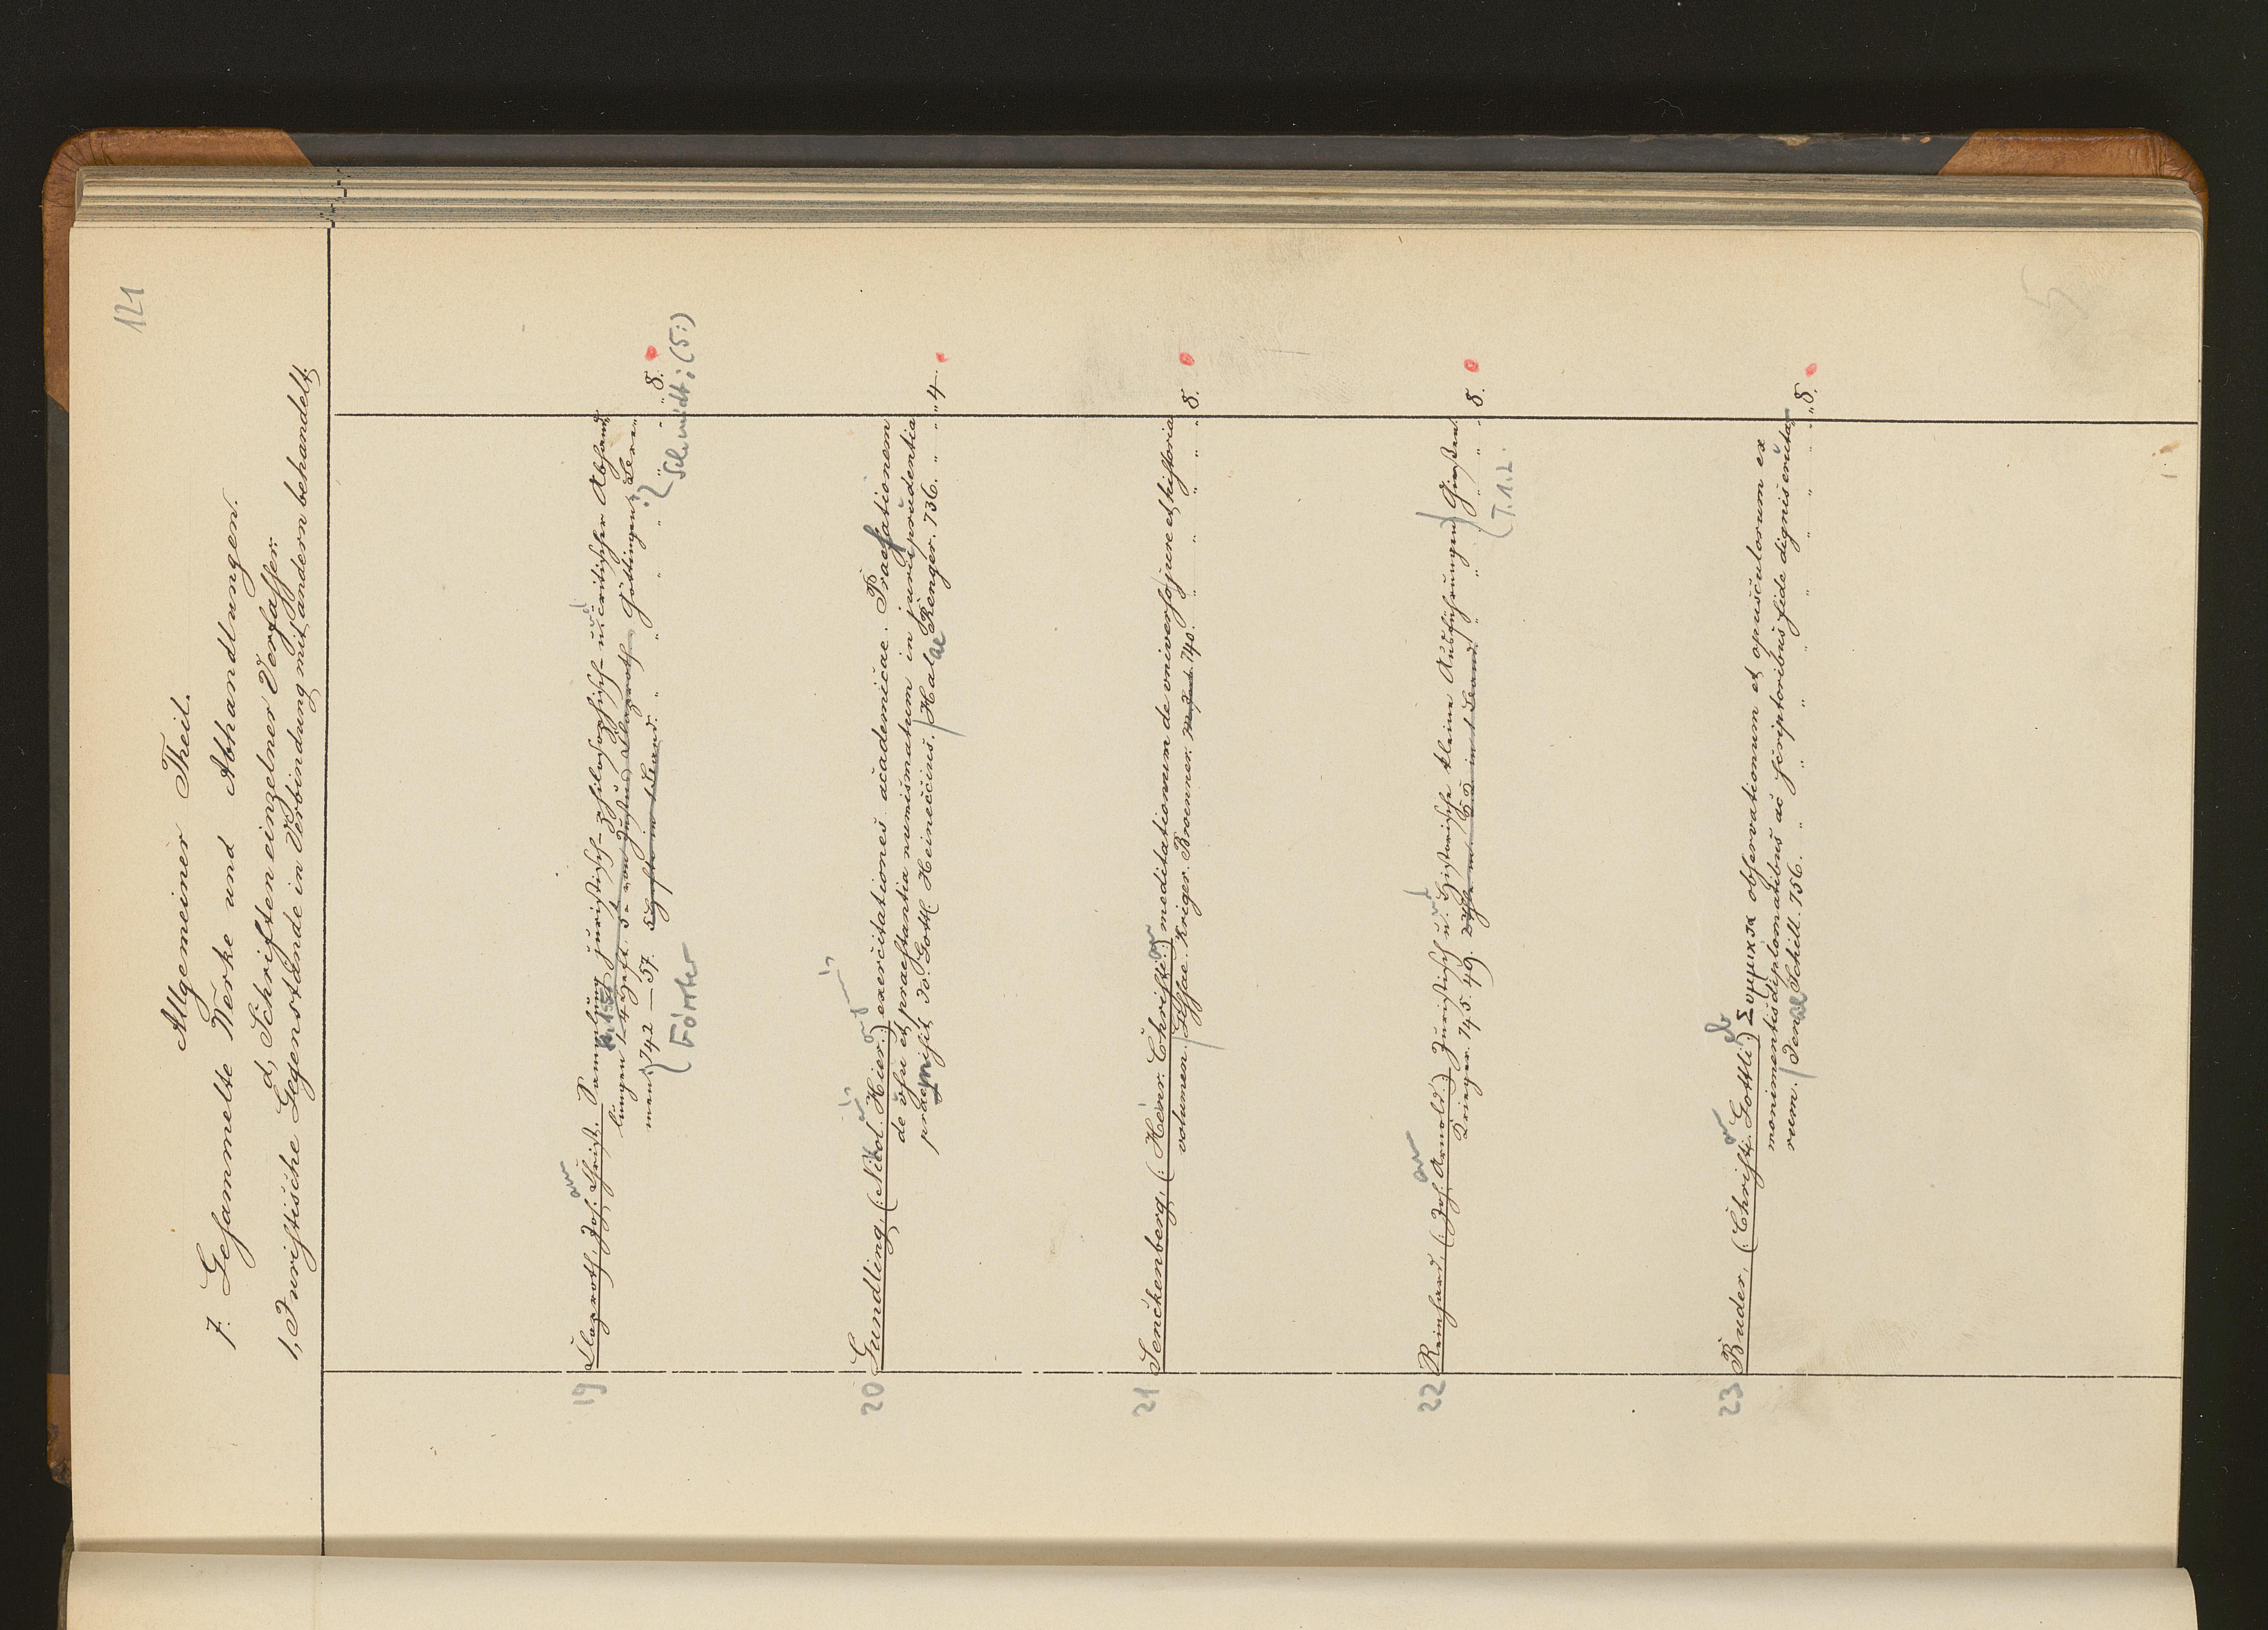 121
Allgemeiner Theil.
7. Gesammelte Werke und Abhandlungen.
d, Schriften einzelner Verfasser.
1, Juristische Gegenstände in Verbindung mit andern behandelt,
19 Claproth, Joh. Christ. Sammlung juristisch-philosophisch- u. critischer Abhand
lungen 1- 4 Heft. 5- von Justus Claproth Göttingen, Bere-
men 742 — 57. 5 Hefte in 1 Band. " " " " " 8.
(Förster Schmidt; (5:)
20 Gundling, (: Nicol. Hier.:) exercitationes academicae. Praefationem
de usu et praestantia numismatum in jurisprudentia
praemisit Jo. Gottl. Heineccius. Halae Renger. 736. " " " 4.
21 Senckenberg, (: Henr. Christi:) meditationum de universo jure et historia
volumen. Kriger. Broenner. 740. " " " " 8.
22 Reinhard, (: Joh. Arnold:) Juristisch u. Historische kleine Ausführungen Gießen
Krieger. 745. 49. in 1 Band. " " " 8.
(T. 1.2.
23 Buder, (: Christi. Gottli:) Συμμικτα observationum et opusculorum ex
monimentis diplomatibus ac scriptoribus fide dignis eruta
rum. Jenae Schill. 756. " " " " " " 8.